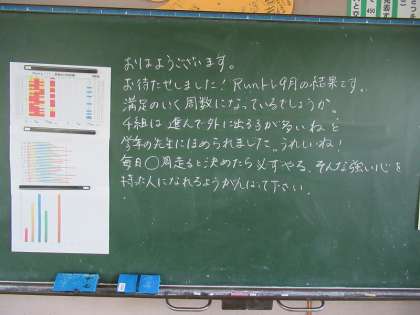 おはようございます。
お待たせしました！Runトレ9月の結果です。
満足のいく周数になっているでしょうか。
4組は進んで外に出る子が多いねと
学年の先生にほめられました。うれしいね！
毎日〇周走ると決めたら必ずやる、そんな強い心を
持った人になれるようがんばって下さい。